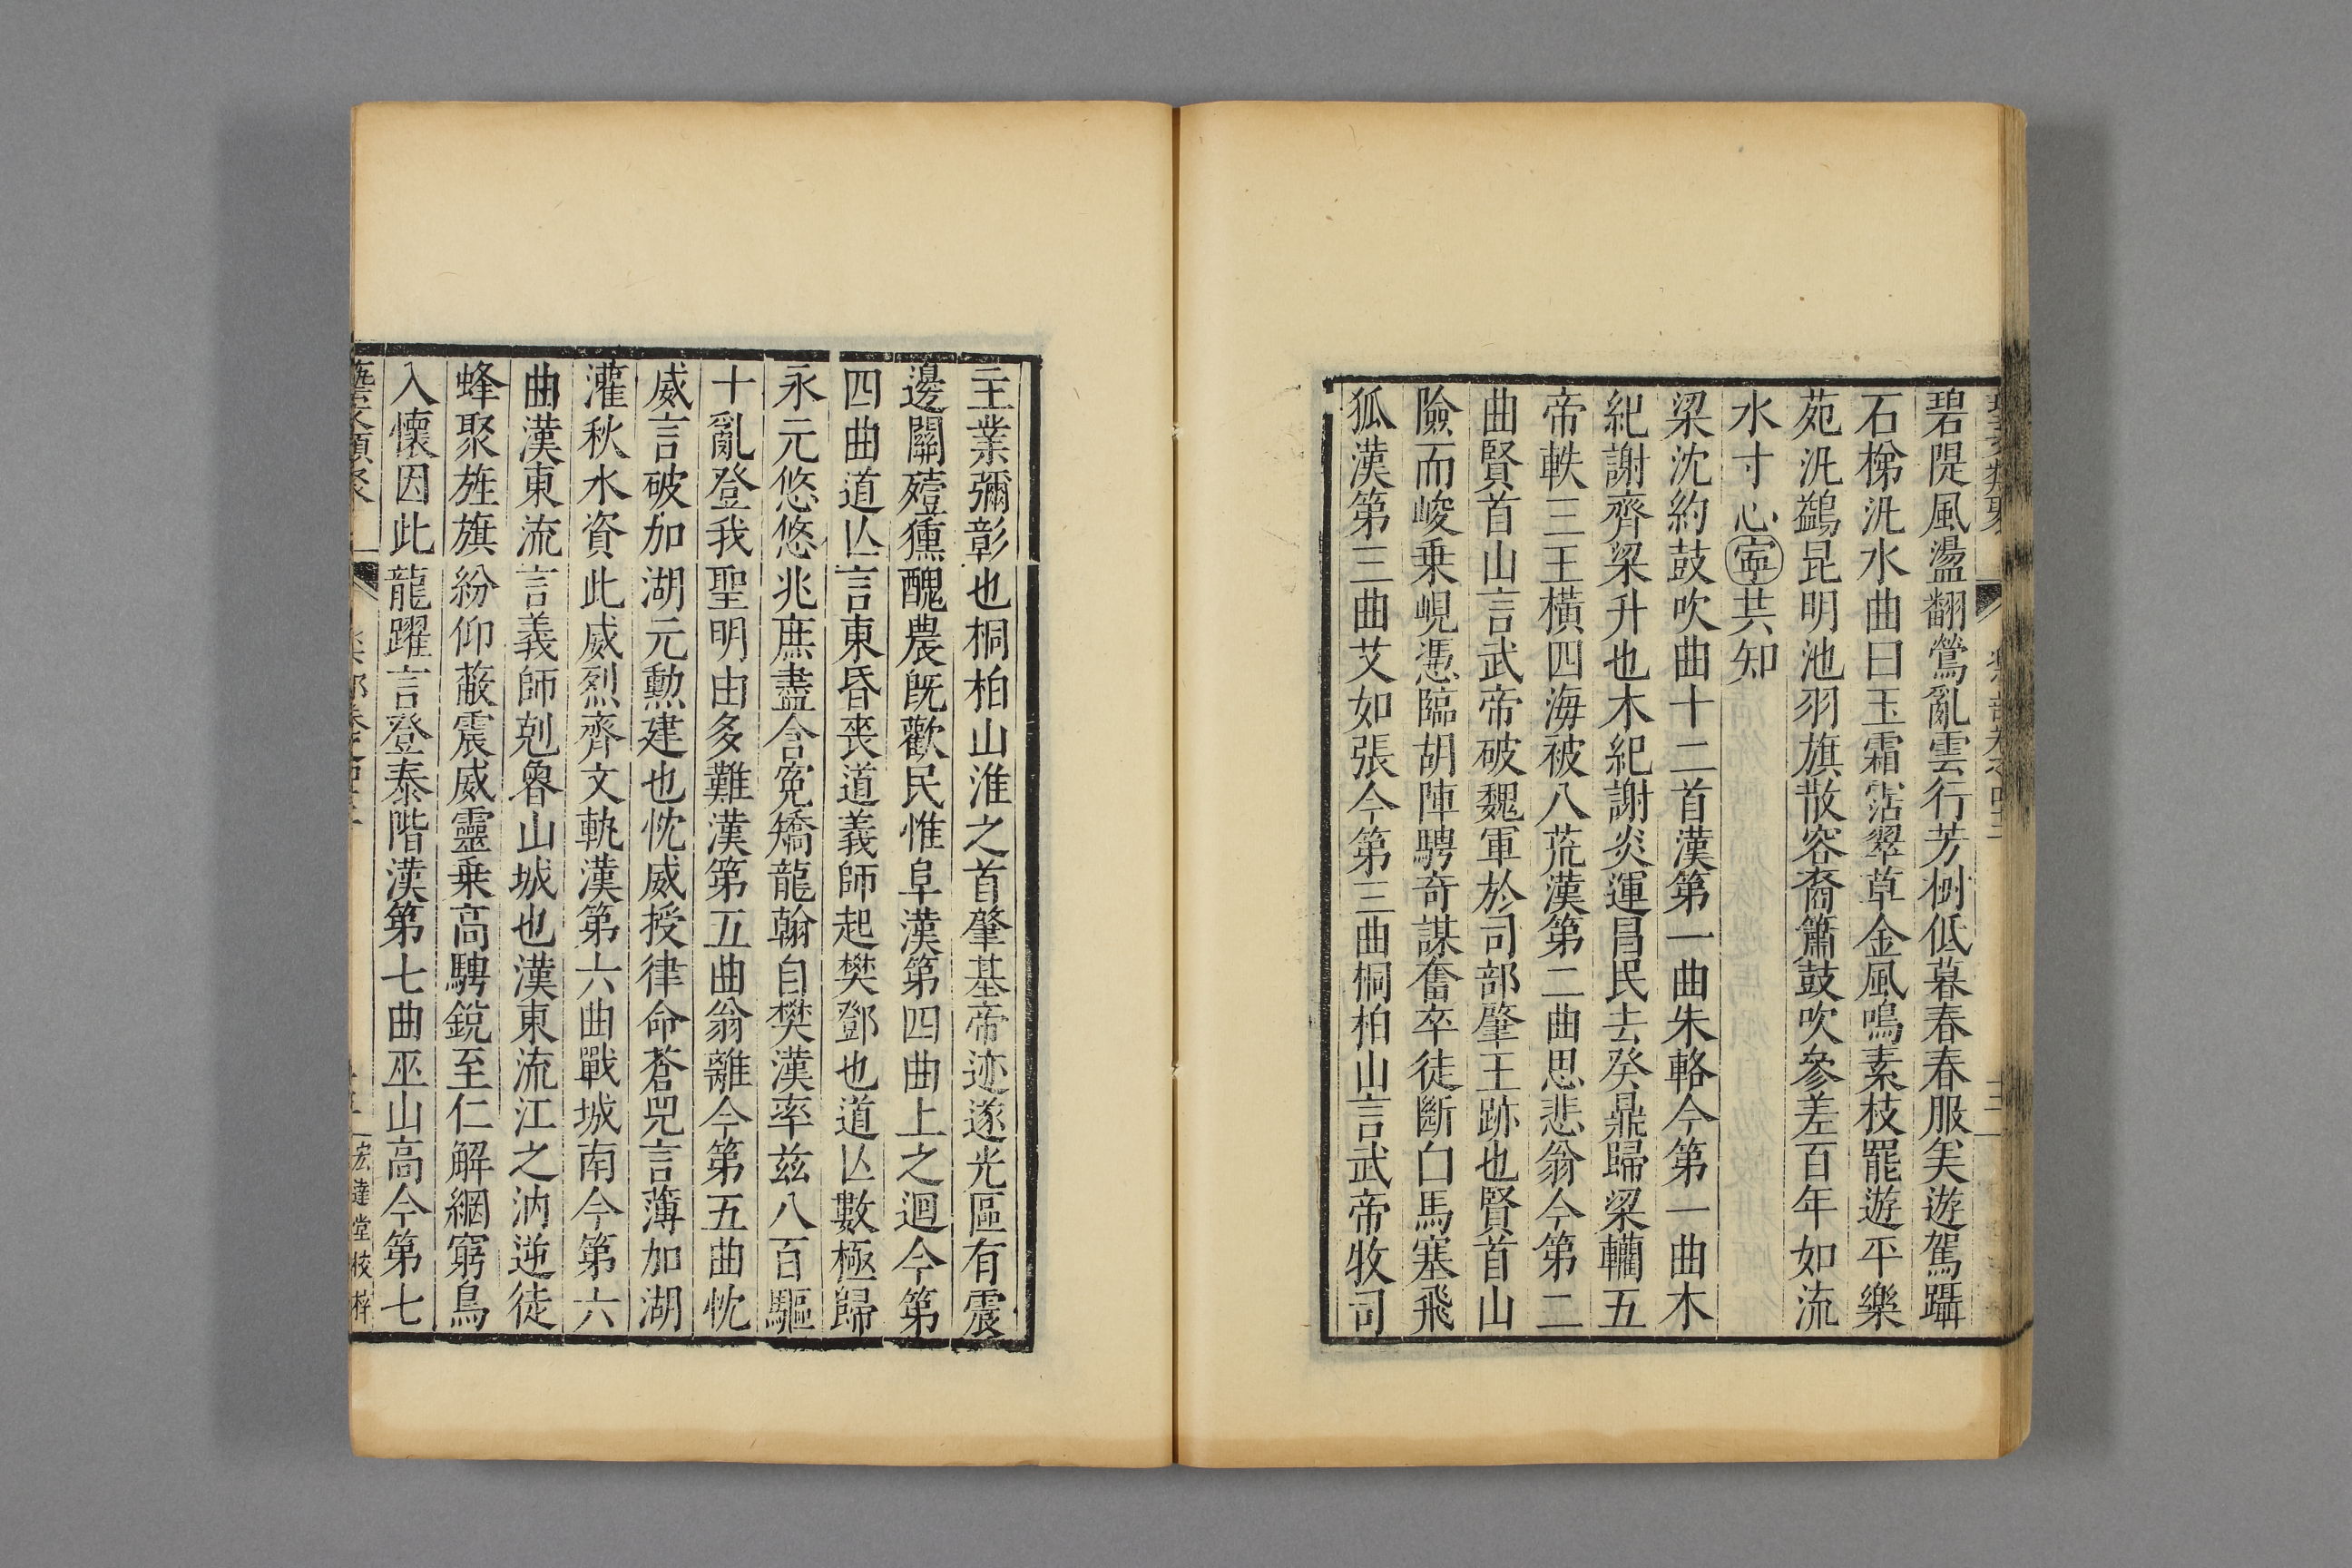 碧隄風盪翻鶯亂雲行芳樹低暮春春服美遊駕躡
石梯汎水曲曰玉霜霑翠草金風鳴素枝罷遊平樂
苑汎鷁昆明池羽旗散容裔簫鼓吹參差百年如流
水寸心寧共知
梁沈約鼓吹曲十二首漢第一曲朱輅今第一曲木
紀謝齊梁升也木紀謝炎運昌民去癸鼎歸梁轥五
帝軼三王橫四海被八荒漢第二曲思悲翁今第二
曲賢首山言武帝破魏軍於司部肇王跡也賢首山
險而峻乗峴憑臨胡陣騁奇謀奮卒徒斷白馬塞飛
狐漢第三曲艾如張今第三曲桐柏山言武帝牧司
王業彌彰也桐柏山淮之首肇基帝迹遂光區有震
邊關殪獯醜農旣歡民惟阜漢第四曲上之迴今第
四曲道亾言東昏喪道義師起樊鄧也道亾數極歸
永元悠悠兆庶盡含冤矯龍翰自樊漢率兹八百驅
十亂登我聖明由多難漢第五曲翁離今第五曲忱
威言破加湖元勲建也忱威授律命蒼兕言薄加湖
灌秋水資此威烈齊文軌漢第六曲戰城南今第六
曲漢東流言義師剋魯山城也漢東流江之汭逆徒
蜂聚旌旗紛仰蔽震威靈乗高騁銳至仁解網窮鳥
入懷因此龍躍言登泰階漢第七曲巫山高今第七
宏達堂校梓